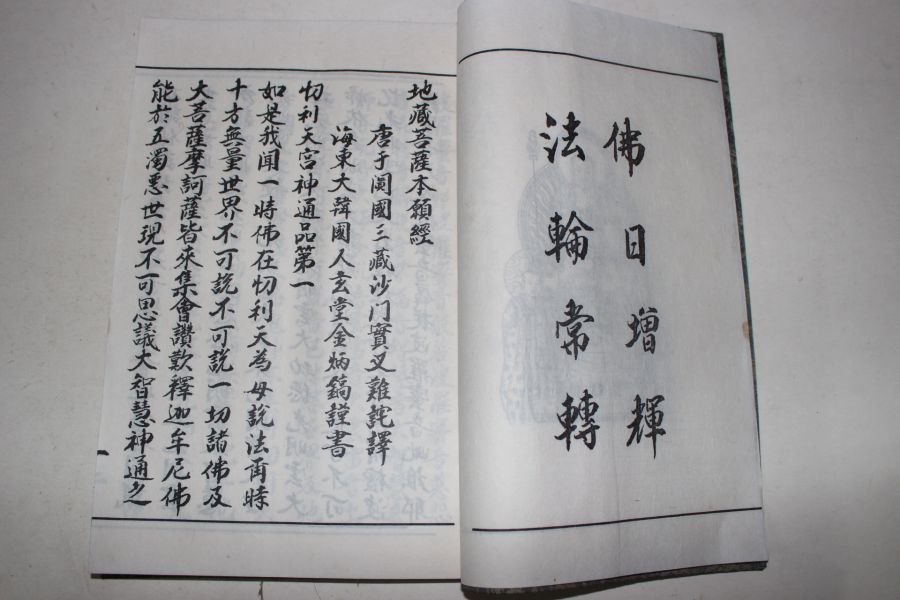 佛日增輝
法輪常轉
地藏菩薩本願經
唐于闐國三藏沙门實叉難詫譯
海東大韓國人玄堂金炳鎬謹書
忉利天宫神通品第一
如是我聞一時佛在忉利天為母說法甭時
十方無量世界不可説不可説一切諸佛及
大菩薩摩訶薩皆来集會讚歎釋迦牟尼佛
能於五濁悪世現不可思議大智慧神通之
一